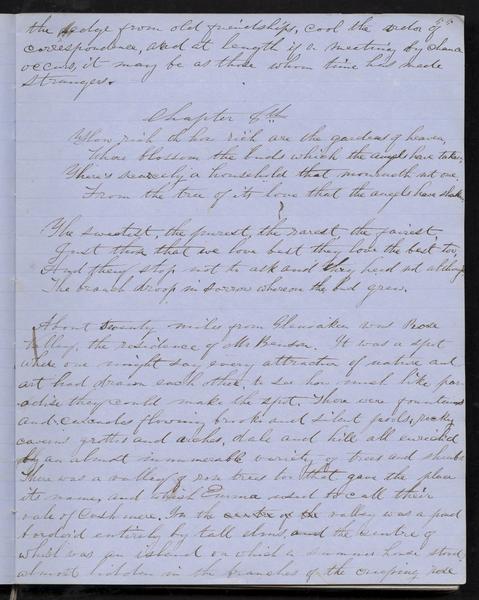 55
the sedge from old friendships, cool the ardor of
correspondence, and at length if a meeting by chance
occurs, it may be as those whom time has made
strangers.
Chapter 8th
Whow rich oh how rich are the gardens of heaven,
Where blossom the buds which the angels have taken;
There's scarcely a household that mourneth not one,
From the tree of its love that the angels have shaken
The sweetest, the purest, the rarest the fairest
Just those that we love best they love the best too,
And they stop not to ask and they heed not although
The branch droop in sorrow whereon the bud grew.
About twenty miles from Glenoaken was Rose
the residence of Mr Benson. It was a spot
where one might say every attraction of nature and
art had drawn each other, to see how much like par
adise they could make the spot. There were fountains
and cascades flowing brooks and silent pools, rocky
caverns grottos and arches, dale and hill all enriched
by an almost innumerable variety of trees and shrubs
There was a valley of rose trees too that gave the place
its name, and which Emma used to call their
vale of Cashmere. In the centre of the valley was a pond
bordered entirely by tall elms, and the centre of
which was an island on which a summer house stood
almost hidden in the branches of the creeping rose